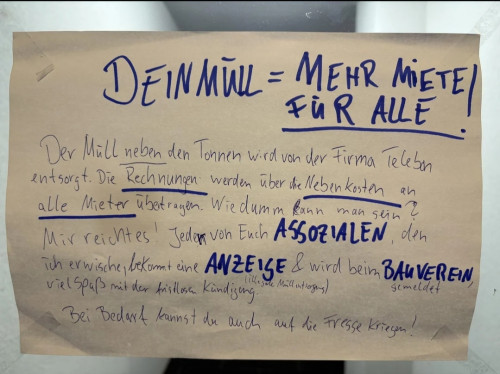 DEIN MÜLL = MEHR MIETE
FÜR ALLE!
Der Müll neben den Tonnen wird von der Firma Teleben
entsorgt. Die Rechnungen werden über die Nebenkosten an
alle Mieter übertragen. Wie dumm kann man sein?
Mir reichtes! Jeden von Euch ASSOZIALEN, den
ich erwische, bekommt eine ANZEIGE & wird beim BAUVEREIN,
viel Spaß mit der fristlosen Kündigung (illegale Müllentsorgung) gemeldet
Bei Bedarf kannst du auch auf die Fresse kriegen!